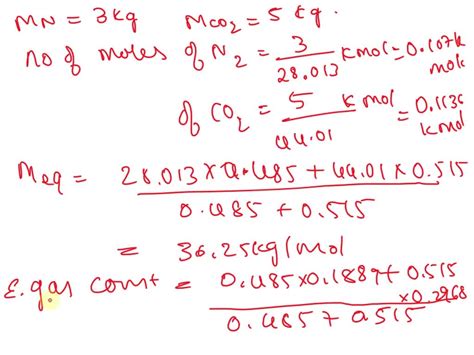 MN = 3kg   Mco2 = 5 kg.
no of moles of N2 = 3/28.013 kmol = 0.107k mole
of CO2 = 5/44.01 k mol = 0.1136 kmol
Meq = 28.013 x 0.485 + 44.01 x 0.515 / 0.485 + 0.515
= 36.25kg/mol
E.gas const = 0.485x0.1889+ 0.515 x0.2968 / 0.485 + 0.515